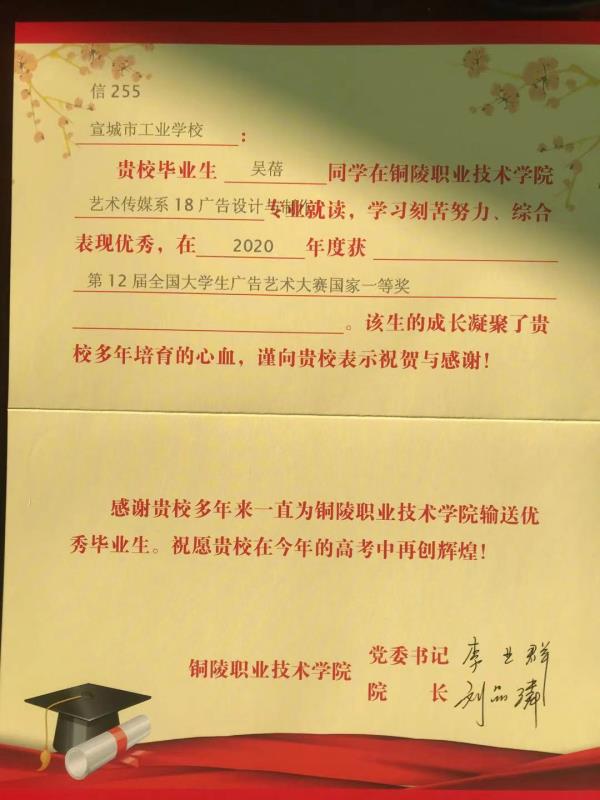 信 255
宣城市工业学校：
贵校毕业生 吴蓓 同学在铜陵职业技术学院
艺术传媒系 18 广告设计与制作专业就读，学习刻苦努力、综合
表现优秀，在 2020 年度获
第 12 届全国大学生广告艺术大赛国家一等奖
。该生的成长凝聚了贵
校多年培育的心血，谨向贵校表示祝贺与感谢！
感谢贵校多年来一直为铜陵职业技术学院输送优
秀毕业生。祝愿贵校在今年的高考中再创辉煌！
铜陵职业技术学院 党委书记 李业群
院 长 刘品